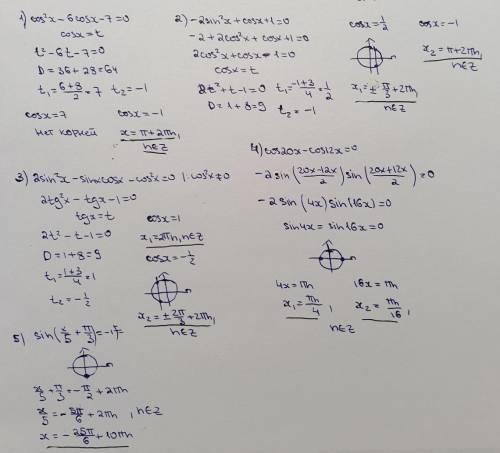 1) cos²x - 6cosx - 7 = 0
cosx = t
t² - 6t - 7 = 0
D = 36 + 28 = 64
t₁ = (6+8)/2 = 7 t₂ = -1
cosx = 7 cosx = -1
нет корней x = π + 2πn, n∈Z
2) -2sin²x + cosx + 1 = 0
-2 + 2cos²x + cosx + 1 = 0
2cos²x + cosx - 1 = 0
cosx = t
2t² + t - 1 = 0
D = 1 + 8 = 9
t₁ = (-1+3)/4 = 1/2
t₂ = -1
cosx = 1/2 cosx = -1
x₁ = ± π/3 + 2πn, n∈Z
x₂ = π + 2πn, n∈Z
3) 2sin²x - sinxcosx - cos²x = 0 |: cos²x ≠ 0
2tg²x - tgx - 1 = 0
tgx = t
2t² - t - 1 = 0
D = 1 + 8 = 9
t₁ = (1+3)/4 = 1
t₂ = -1/2
cosx = 1
x₁ = 2πn, n∈Z
cosx = -1/2
x₂ = ± 2π/3 + 2πn, n∈Z
4) cos20x - cos12x = 0
-2sin((20x-12x)/2) sin((20x+12x)/2) = 0
-2sin(4x) sin(16x) = 0
sin4x = sin16x = 0
4x = πn 16x = πn
x₁ = πn/4, x₂ = πn/16,
n∈Z
5) sin(x/5 + π/3) = -1
x/5 + π/3 = -π/2 + 2πn
x/5 = -5π/6 + 2πn, n∈Z
x = -25π/6 + 10πn